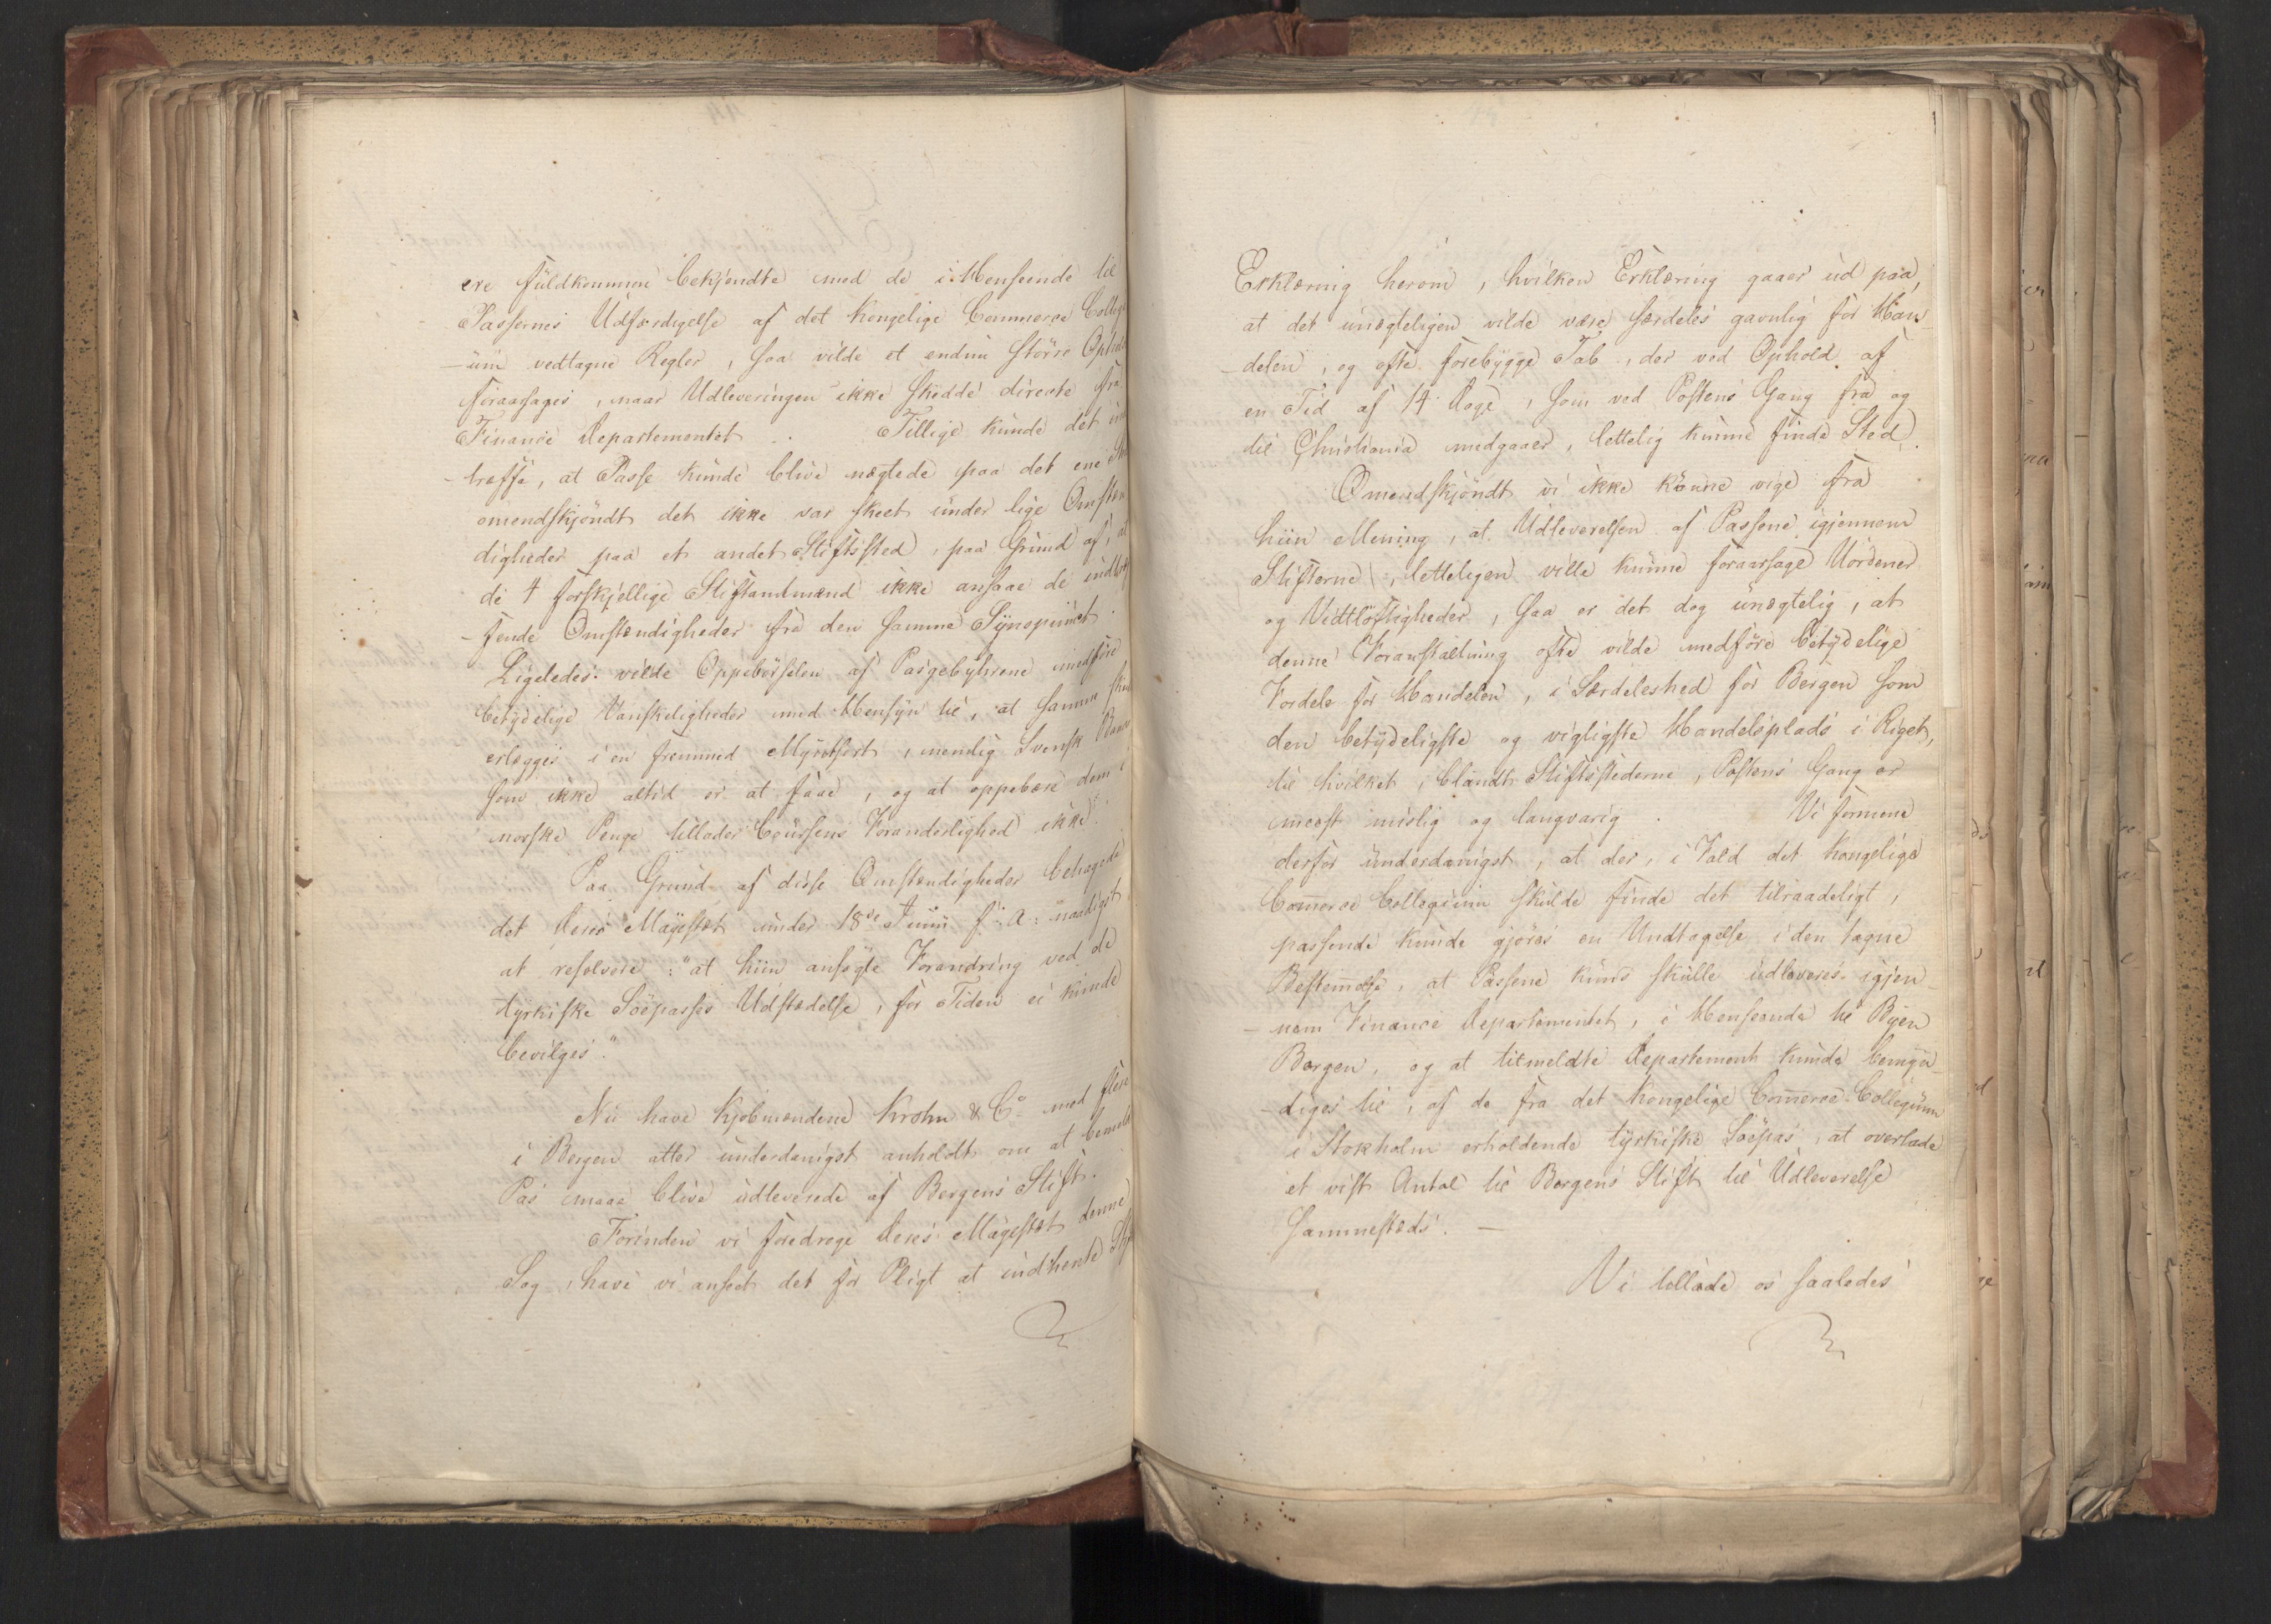 ere fuldkommen bekjendte med de i Henseende til
Passernes Udfærdigelse af det Kongelige Commerce Colleg
-um vedtagne Regler, saa vilde et endnu større Ophold
foraarsages, naar Udleveringen ikke skedde directe fra
Finance Departementet. Tillige kunde det ind
-træffe, at Passe kunde blive nægtede paa det ene
omendskjöndt det ikke var skeet under lige Omstæn
digheder paa et andet Stiftssted, paa Grund af, at
de 4 forskjellige Stiftamtmænd ikke ansaae de indløb
-fende Omstændigheder fra den samme Synspunct.
Ligeledes vilde Oppebörselen af Pasgebyhrene medföre
betydelige Vanskeligheder med Hensyn til, at samme skal
erlægges i en fremmed Myntsort, nemlig Svensk Banco
som ikke altid er at faae, og at oppebære dem i
norske Penge tillader Coursens Foranderlighed ikke.
Paa Grund af disse Omstændigheder behagede
det Deres Majestæt under 18de Junii f: A: naadigst
at resolvere: "at hiin ansøgte Forandring ved de
tyrkiske Söepasses Udstædelse, for Tiden ei kunde
bevilges."
Nu have Kjøbmændene Krohn & Co med flere
i Bergen atter underdanigst anholdt om at bemeldte
Pas maae blive udleverede af Bergens Stift.
Forinden vi foredroge Deres Majestæt denne
Sag, have vi anseet det for Pligt at indhente
Erklæring herom, hvilken Erklæring gaaer ud paa,
at det unægteligen vilde være særdeles gavnlig for Han
-delen, og ofte forebygge Tab, der ved Ophold af
en Tid af 14 Dage, som ved Postens Gang fra og
til Christiania medgaaer, lettelig kunne finde Sted.
Omendskjöndt vi ikke kunne vige fra
hiin Mening, at Udleverelsen af Passene igjennem
Stifterne, letteligen ville kunne foraarsage Uordener
og Vidtlöftigheder, saa er det dog unægtelig, at
denne Foranstaltning ofte vilde medföre betydelige
Fordele for Handelen, i Særdeleshed for Bergen som
den betydeligste og vigtigste Handelsplads i Riget,
til hvilket, blandt Stiftsstæderne, Postens Gang er
meest mislig og langvarig. Vi formene
derfor underdanigst, at der, i Fald det Kongelige
Comerce Collegium skulde finde det tilraadeligt,
passende kunde gjøres en Undtagelse i den tagne
Bestemelse, at Passene kuns skulle udleveres igjen
-nem Finance Departementet, i Henseende til Byen
Bergen, og at titmeldte Departement kunde bemyn
-diges til, af de fra det Kongelige Comerce Collegium
i Stokholm erholdende tyrkiske Söepas, at overlade
et vist Antal til Bergens Stift til Udleverelse
sammesteds. —
Vi tillade os saaledes